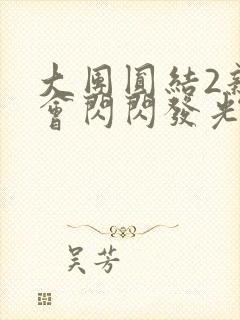 大團圓結2親
會閃閃發光
吳芳